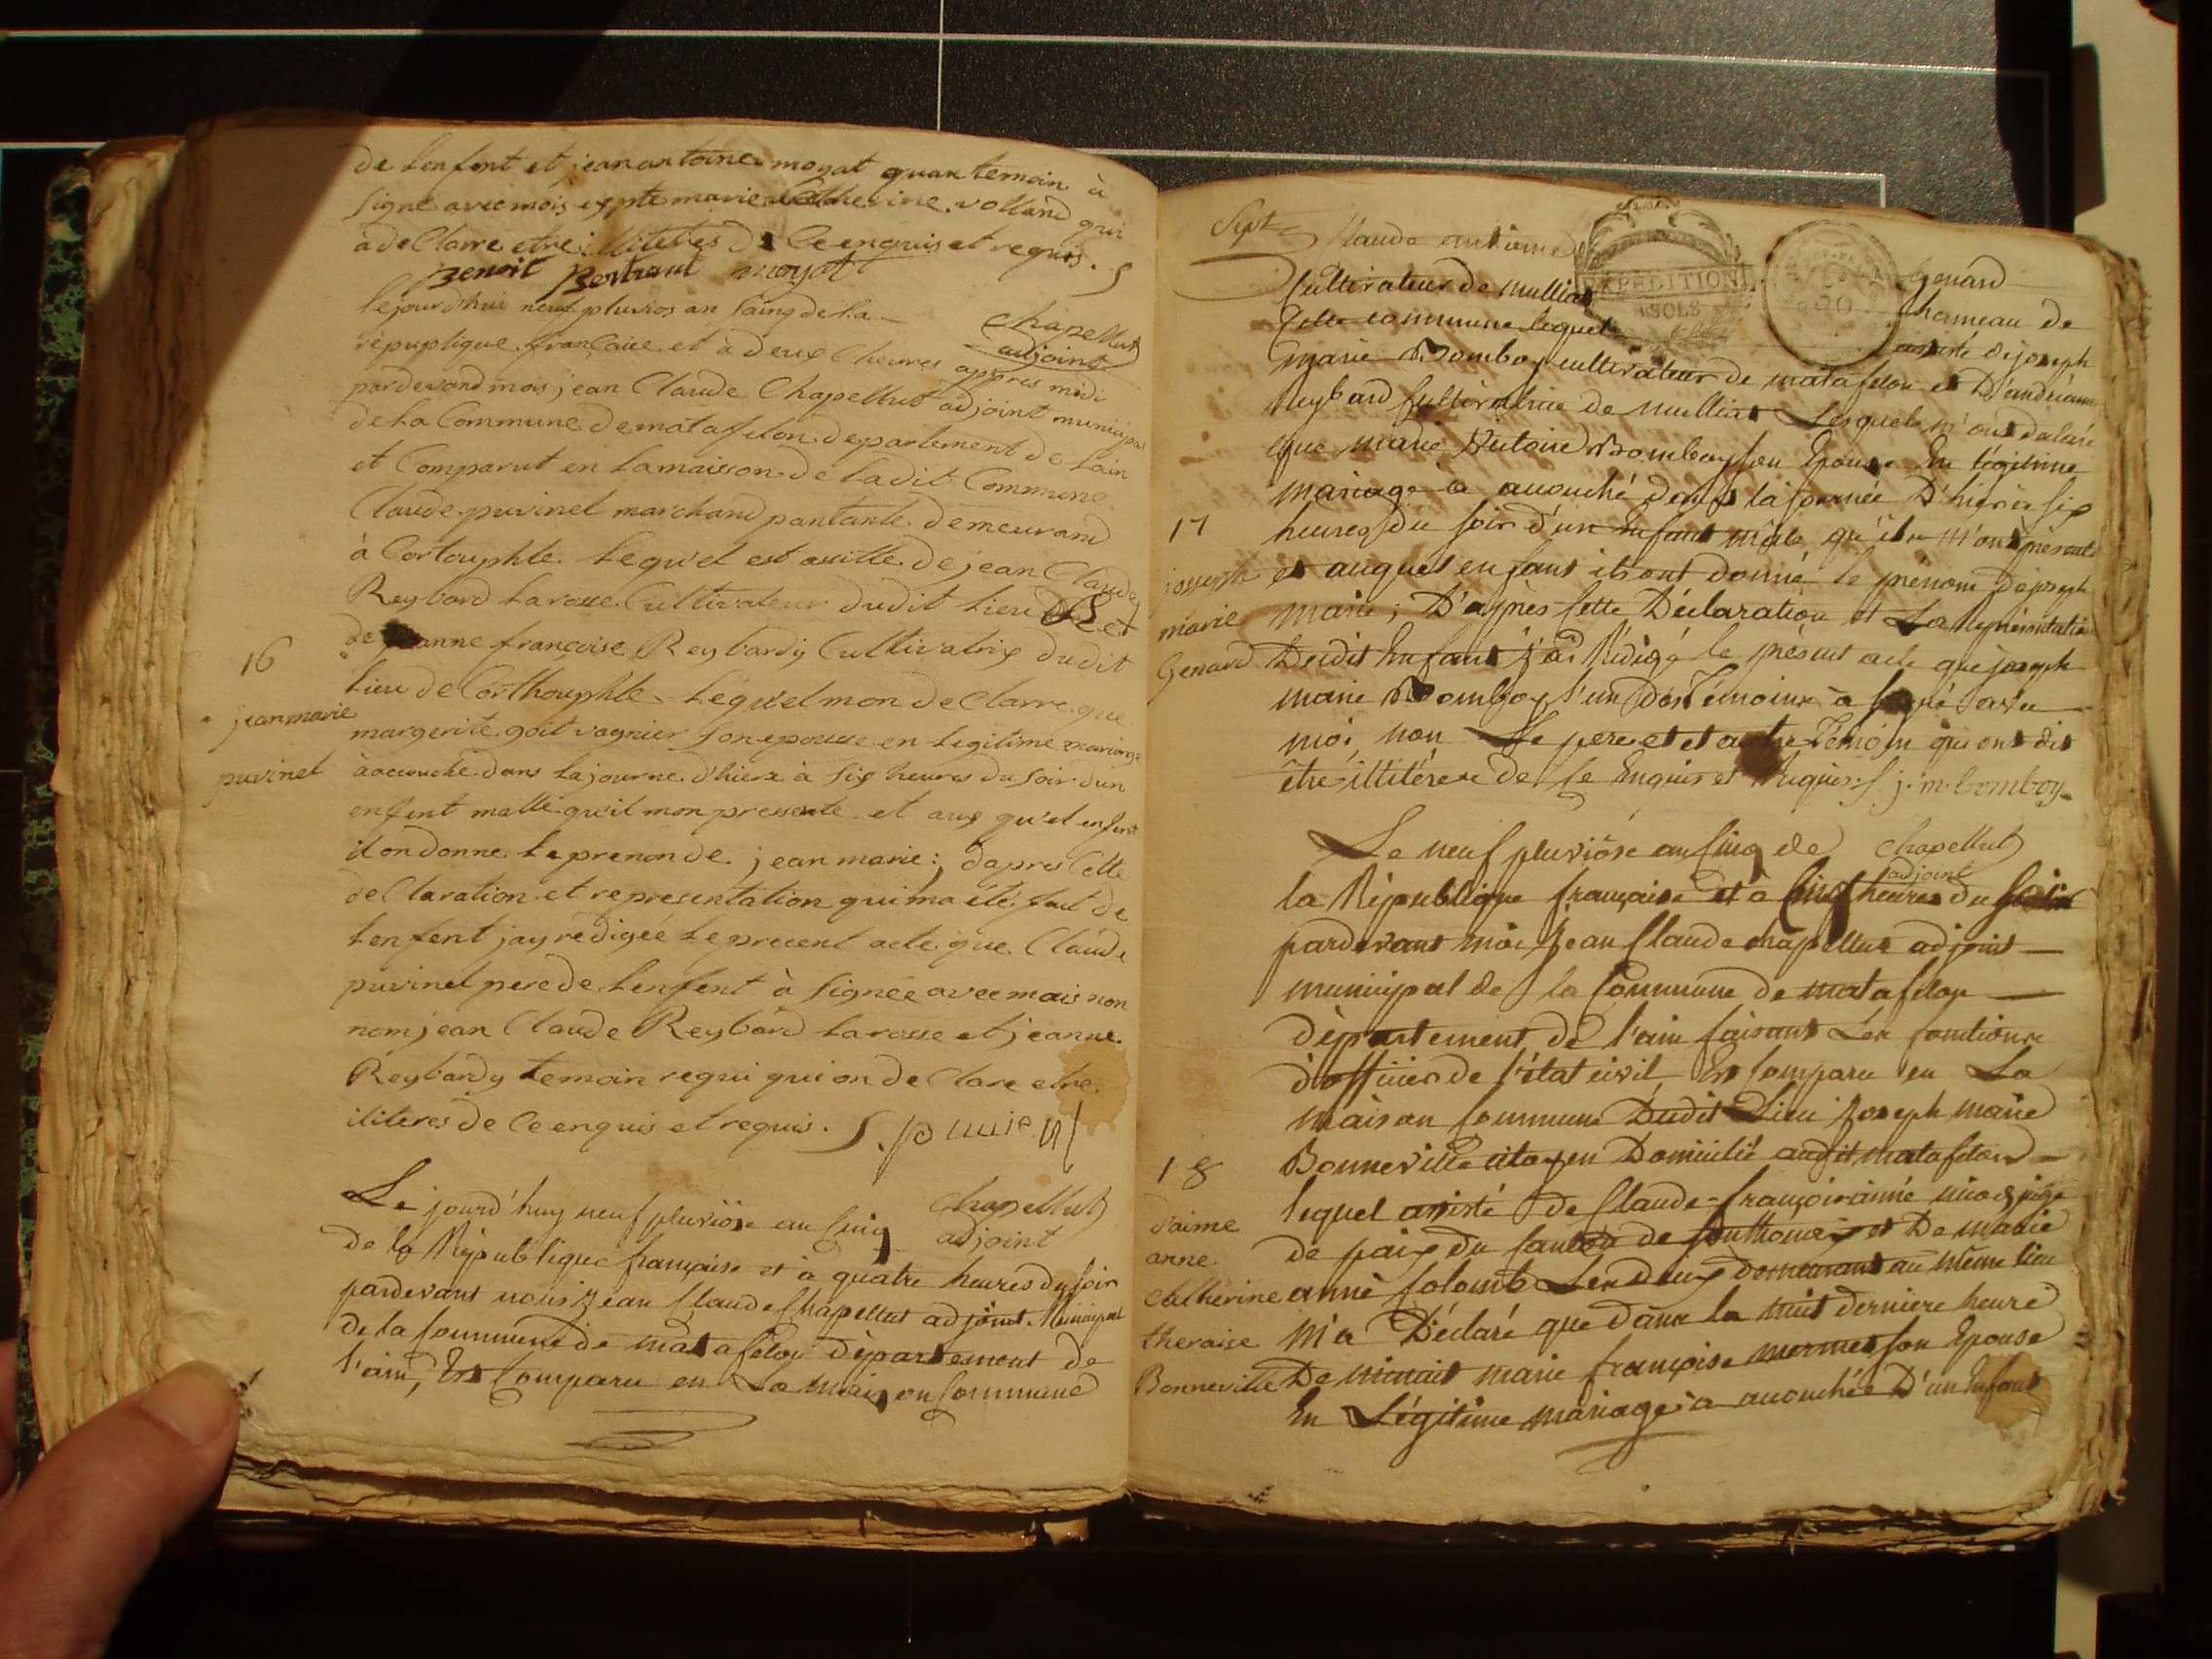 de lenfent et jean antoine moyat quan temoin à
signe avec mois expte marie Catherine volland qui
à de Clarre etre illiteres de Ce enquis et requis.
Benoit Bertrant moyat
lejourd'hui neuf pluvios an Sainq de La
chapellut
adjoint
repuplique francaise et à deux heures appres midi
pardevand mois jean Claude Chapellut adjoint municipal
de La Commune de matafelon departement de Lain
et Comparut en Lamaisson de Ladit Commune
Claude puvinel marchand pantante demeurand
à Cortouphle Lequ'el est assitte de jean Claude
Reybard Larosse Cultivateur dudit Lieu et
de jeanne françoise Reybardy Cultivatrix dudit
16
Lieu de Corthouphle Lequ'el mon de Clarre que
jean marie
puvinel
margerite goit vagnier son epousse en Legitime mariage
à accouche dans La journe d'hiere à six heures du soir dun
enfent malle qu'il mon pressente et aux qu'el enfent
il on donne Le prenon de jean marie; dapres Cette
de Claration et representation qui ma été fait de
Lenfent jay rédigée Le precent acte que Claude
puvinel pere de Lenfent à signée avec mois non
nom jean Claude Reybard Larosse et jeanne
Reybardy temoin requi qui on de Clare etre
iliteres de Ce enquis et requis. S. puvinel
Chapellut
adjoint
Le jourd'huy neuf pluviôse an Cinq
de la République française et à quatre heures du soir
pardevant nous Jean Claude Chapellut adjoint Municipal
de la Commune de matafelon département de
l'ain, Est Comparu en La maison Commune
Sept Claude antoine Genard
Cultivateur de mulliat hameau de
Cette commune lequel assisté de joseph
marie Bomboy cultivateur de matafelon et D'andréanne
Reybard Cultivatrice de mulliat Lesquels m'ont déclaré
que marie Victoire Bomboy son Epouse En légitime
mariage a accouché dans la journée D'hier à six
17
heures du soir d'un Enfant mâle qu'ils m'ont présenté
joseph
marie
Genard
et auquel enfant ils ont donné le prénom de joseph
marie; D'après Cette Déclaration et La Représentation
Dudit Enfant j'ai Rédigé le présent acte que joseph
marie Bomboy l'un Des Témoins a signé avec
moi non Le pere et et autre Témoin qui ont dit
être illitérere de Ce Enquis et Requis. j. m. bomboy
Chapellut
adjoint
Le neuf pluviôse an Cinq de
la République française et à Cinq heures du soir
pardevant moi Jean Claude chapellut adjoint
municipal de la Commune de matafelon
département de l'ain faisant Les fonctions
d'officier de l'état civil Est Comparu en La
maison Commune Dudit Lieu Joseph marie
18
Bonneville citoyen Domicilié audit matafelon
J'aime
anne
Catherine
theraise
Bonneville
lequel assisté de Claude-françois aimé nicod juge
de paix du Canton de Sonthonax et De marie
anne Colomb Les deux demeurant au même lieu
M'a Déclaré que dans la nuit derniere heure
De minuit marie françoise mermet son Epouse
En Légitime mariage a accouchée D'un Enfant